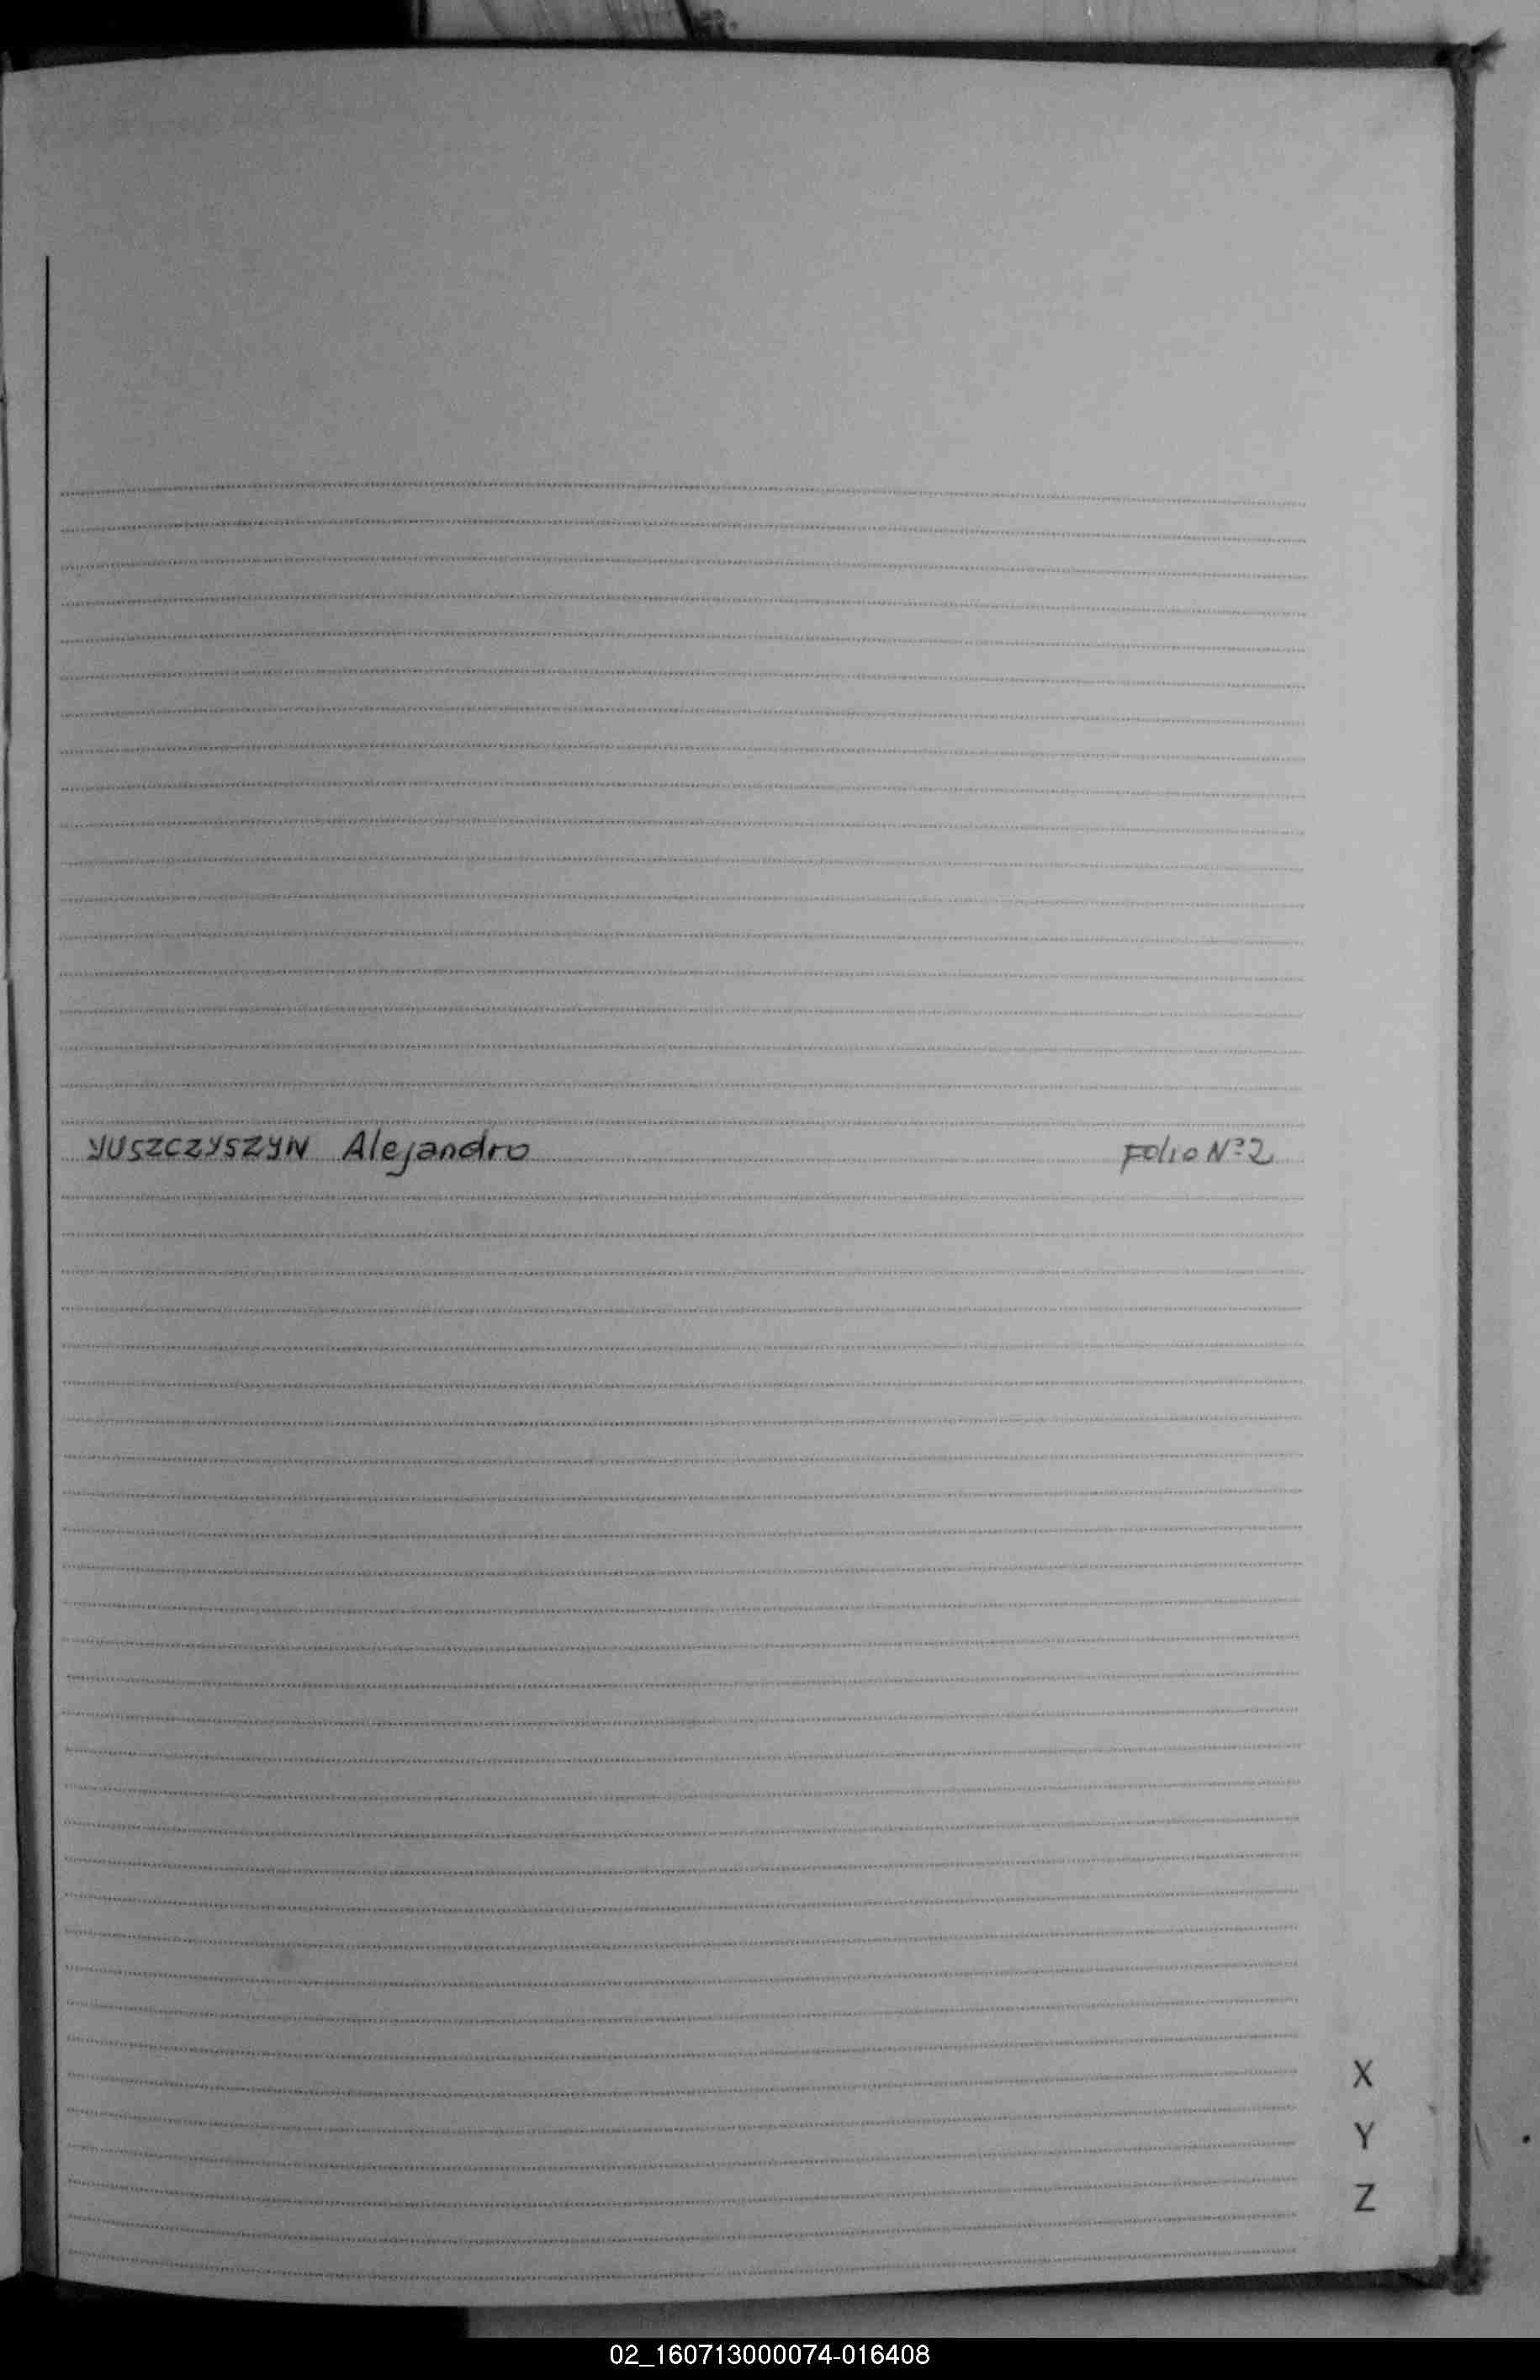 YUSZCZYSZYN Alejandro Folio Nº 2
X
Y
Z
02_160713000074-016408